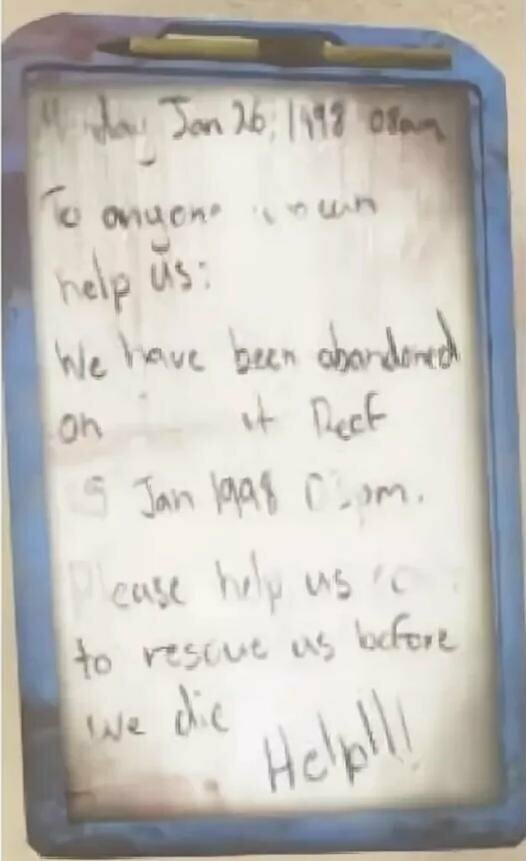 Monday Jan 26, 1998 08am
To anyone
help us:
We have been abandoned
on Reef
Jan 1998
Please help us
to rescue us before
we die
Help!!!